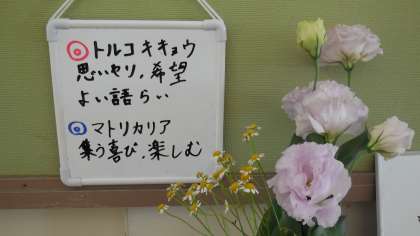 ◎トルコキキョウ
思いやり,希望
よい語らい
◎マトリカリア
集う喜び,楽しむ